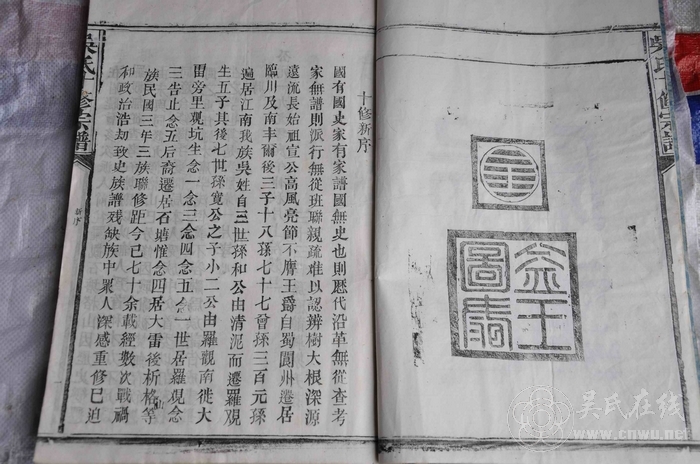 吳氏十修宗譜
十修新序
國有國史家有家譜國無史也則歷代沿革無從查考
家無譜則派行無從班聯親疏難以認辨樹大根深源
遠流長始祖宣公高風亮節不膺王爵自蜀閬州遷居
臨川及南丰爾後三子十八孫七十七曾孫三百元孫
遍居江南我族吳姓自三世孫和公由清泥而遷羅覌
生五子其後七世孫寬公之子小二公由羅觀南徙大
雷旁里覌坑生念一念三念四念五念一世居羅覌念
三告止念五后裔遷居石塘惟念四居大雷後析格等
族民國三年三族聯修距今已七十余載經數次戰禍
和政治浩劫致史族譜残缺族中眾人深感重修已迫
吳氏十修宗譜
新序
吴氏在线
www.cnwu.net